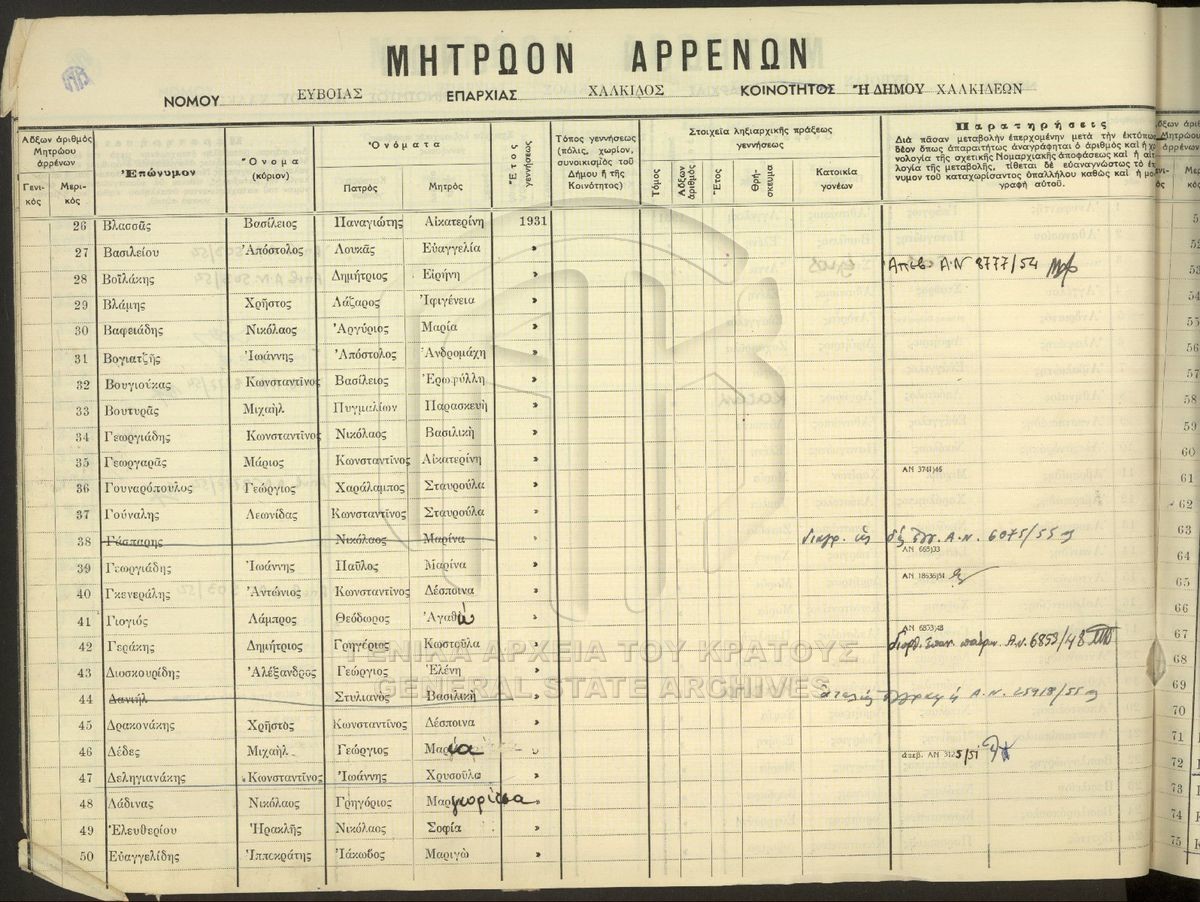 ΜΗΤΡΩΟΝ ΑΡΡΕΝΩΝ
ΝΟΜΟΥ ΕΥΒΟΙΑΣ ΕΠΑΡΧΙΑΣ ΧΑΛΚΙΔΟΣ ΚΟΙΝΟΤΗΤΟΣ Ἢ ΔΗΜΟΥ ΧΑΛΚΙΔΕΩΝ
Αὔξων ἀριθμὸς Μητρώου ἀρρένων
Γενικός Μερικός
Ἐπώνυμον
Ὄνομα (κύριον)
Ὀνόματα
Πατρὸς Μητρὸς
Ἔτος γεννήσεως
Τόπος γεννήσεως (πόλις, χωρίον, συνοικισμὸς τοῦ Δήμου ἢ τῆς Κοινότητος)
Στοιχεῖα ληξιαρχικῆς πράξεως γεννήσεως
Τόμος Αὔξων ἀριθμὸς Ἔτος Θρήσκευμα Κατοικία γονέων
Παρατηρήσεις
Διὰ πᾶσαν μεταβολὴν ἐπερχομένην μετὰ τὴν ἐκτύπω
δέον ὅπως ἀπαραιτήτως ἀναγράφεται ὁ ἀριθμὸς καὶ ἡ χρ
νολογία τῆς σχετικῆς Νομαρχιακῆς ἀποφάσεως καὶ ἡ αἰτ
λογία τῆς μεταβολῆς, τίθεται δὲ εὐαναγνώστως τὸ ἐπ
νυμον τοῦ καταχωρίσαντος ὑπαλλήλου καθὼς καὶ ἡ μο
γραφή αὐτοῦ.
26 Βλασσᾶς Βασίλειος Παναγιώτης Αἰκατερίνη 1931
27 Βασιλείου Ἀπόστολος Λουκᾶς Εὐαγγελία »
28 Βοϊλάκης Δημήτριος Εἰρήνη » Ἀπεβ. Α.Ν 8777/54
29 Βλάμης Χρῆστος Λάζαρος Ἰφιγένεια »
30 Βαφειάδης Νικόλαος Ἀργύριος Μαρία »
31 Βογιατζῆς Ἰωάννης Ἀπόστολος Ἀνδρομάχη »
32 Βουγιούκας Κωνσταντῖνος Βασίλειος Ἐρωφύλλη »
33 Βουτυρᾶς Μιχαὴλ Πυγμαλίων Παρασκευὴ »
34 Γεωργιάδης Κωνσταντῖνος Νικόλαος Βασιλικὴ »
35 Γεωργαρᾶς Μάριος Κωνσταντῖνος Αἰκατερίνη »
36 Γουναρόπουλος Γεώργιος Χαράλαμπος Σταυρούλα » ΑΝ 3741)46
37 Γούναλης Λεωνίδας Κωνσταντῖνος Σταυρούλα »
38 Γάσπαρης Νικόλαος Μαρίνα » διαγρ. ὡς Α.Ν. 6075/55
39 Γεωργιάδης Ἰωάννης Παῦλος Μαρίνα » ΑΝ 665)33
40 Γκενεράλης Ἀντώνιος Κωνσταντῖνος Δέσποινα » ΑΝ 18636)51
41 Γιογιός Λάμπρος Θεόδωρος Ἀγαθὼ »
42 Γεράκης Δημήτριος Γρηγόριος Κωστοῦλα » ΑΝ 6853)48 διορθ. Α.Ν. 6853/48
43 Διοσκουρίδης Ἀλέξανδρος Γεώργιος Ἑλένη »
44 Δανιὴλ Στυλιανὸς Βασιλικὴ » Α.Ν.
45 Δρακονάκης Χρῆστὸς Κωνσταντῖνος Δέσποινα »
46 Δέδες Μιχαὴλ Γεώργιος Μαρία » ἀπεβ. ΑΝ 3125/51
47 Δεληγιανάκης Κωνσταντῖνος Ἰωάννης Χρυσοῦλα »
48 Λάδινας Νικόλαος Γρηγόριος Μαργιορίτσα »
49 Ἐλευθερίου Ἡρακλῆς Νικόλαος Σοφία »
50 Εὐαγγελίδης Ἱπποκράτης Ἰάκωβος Μαριγὼ »
ΓΕΝΙΚΑ ΑΡΧΕΙΑ ΤΟΥ ΚΡΑΤΟΥΣ
GENERAL STATE ARCHIVES